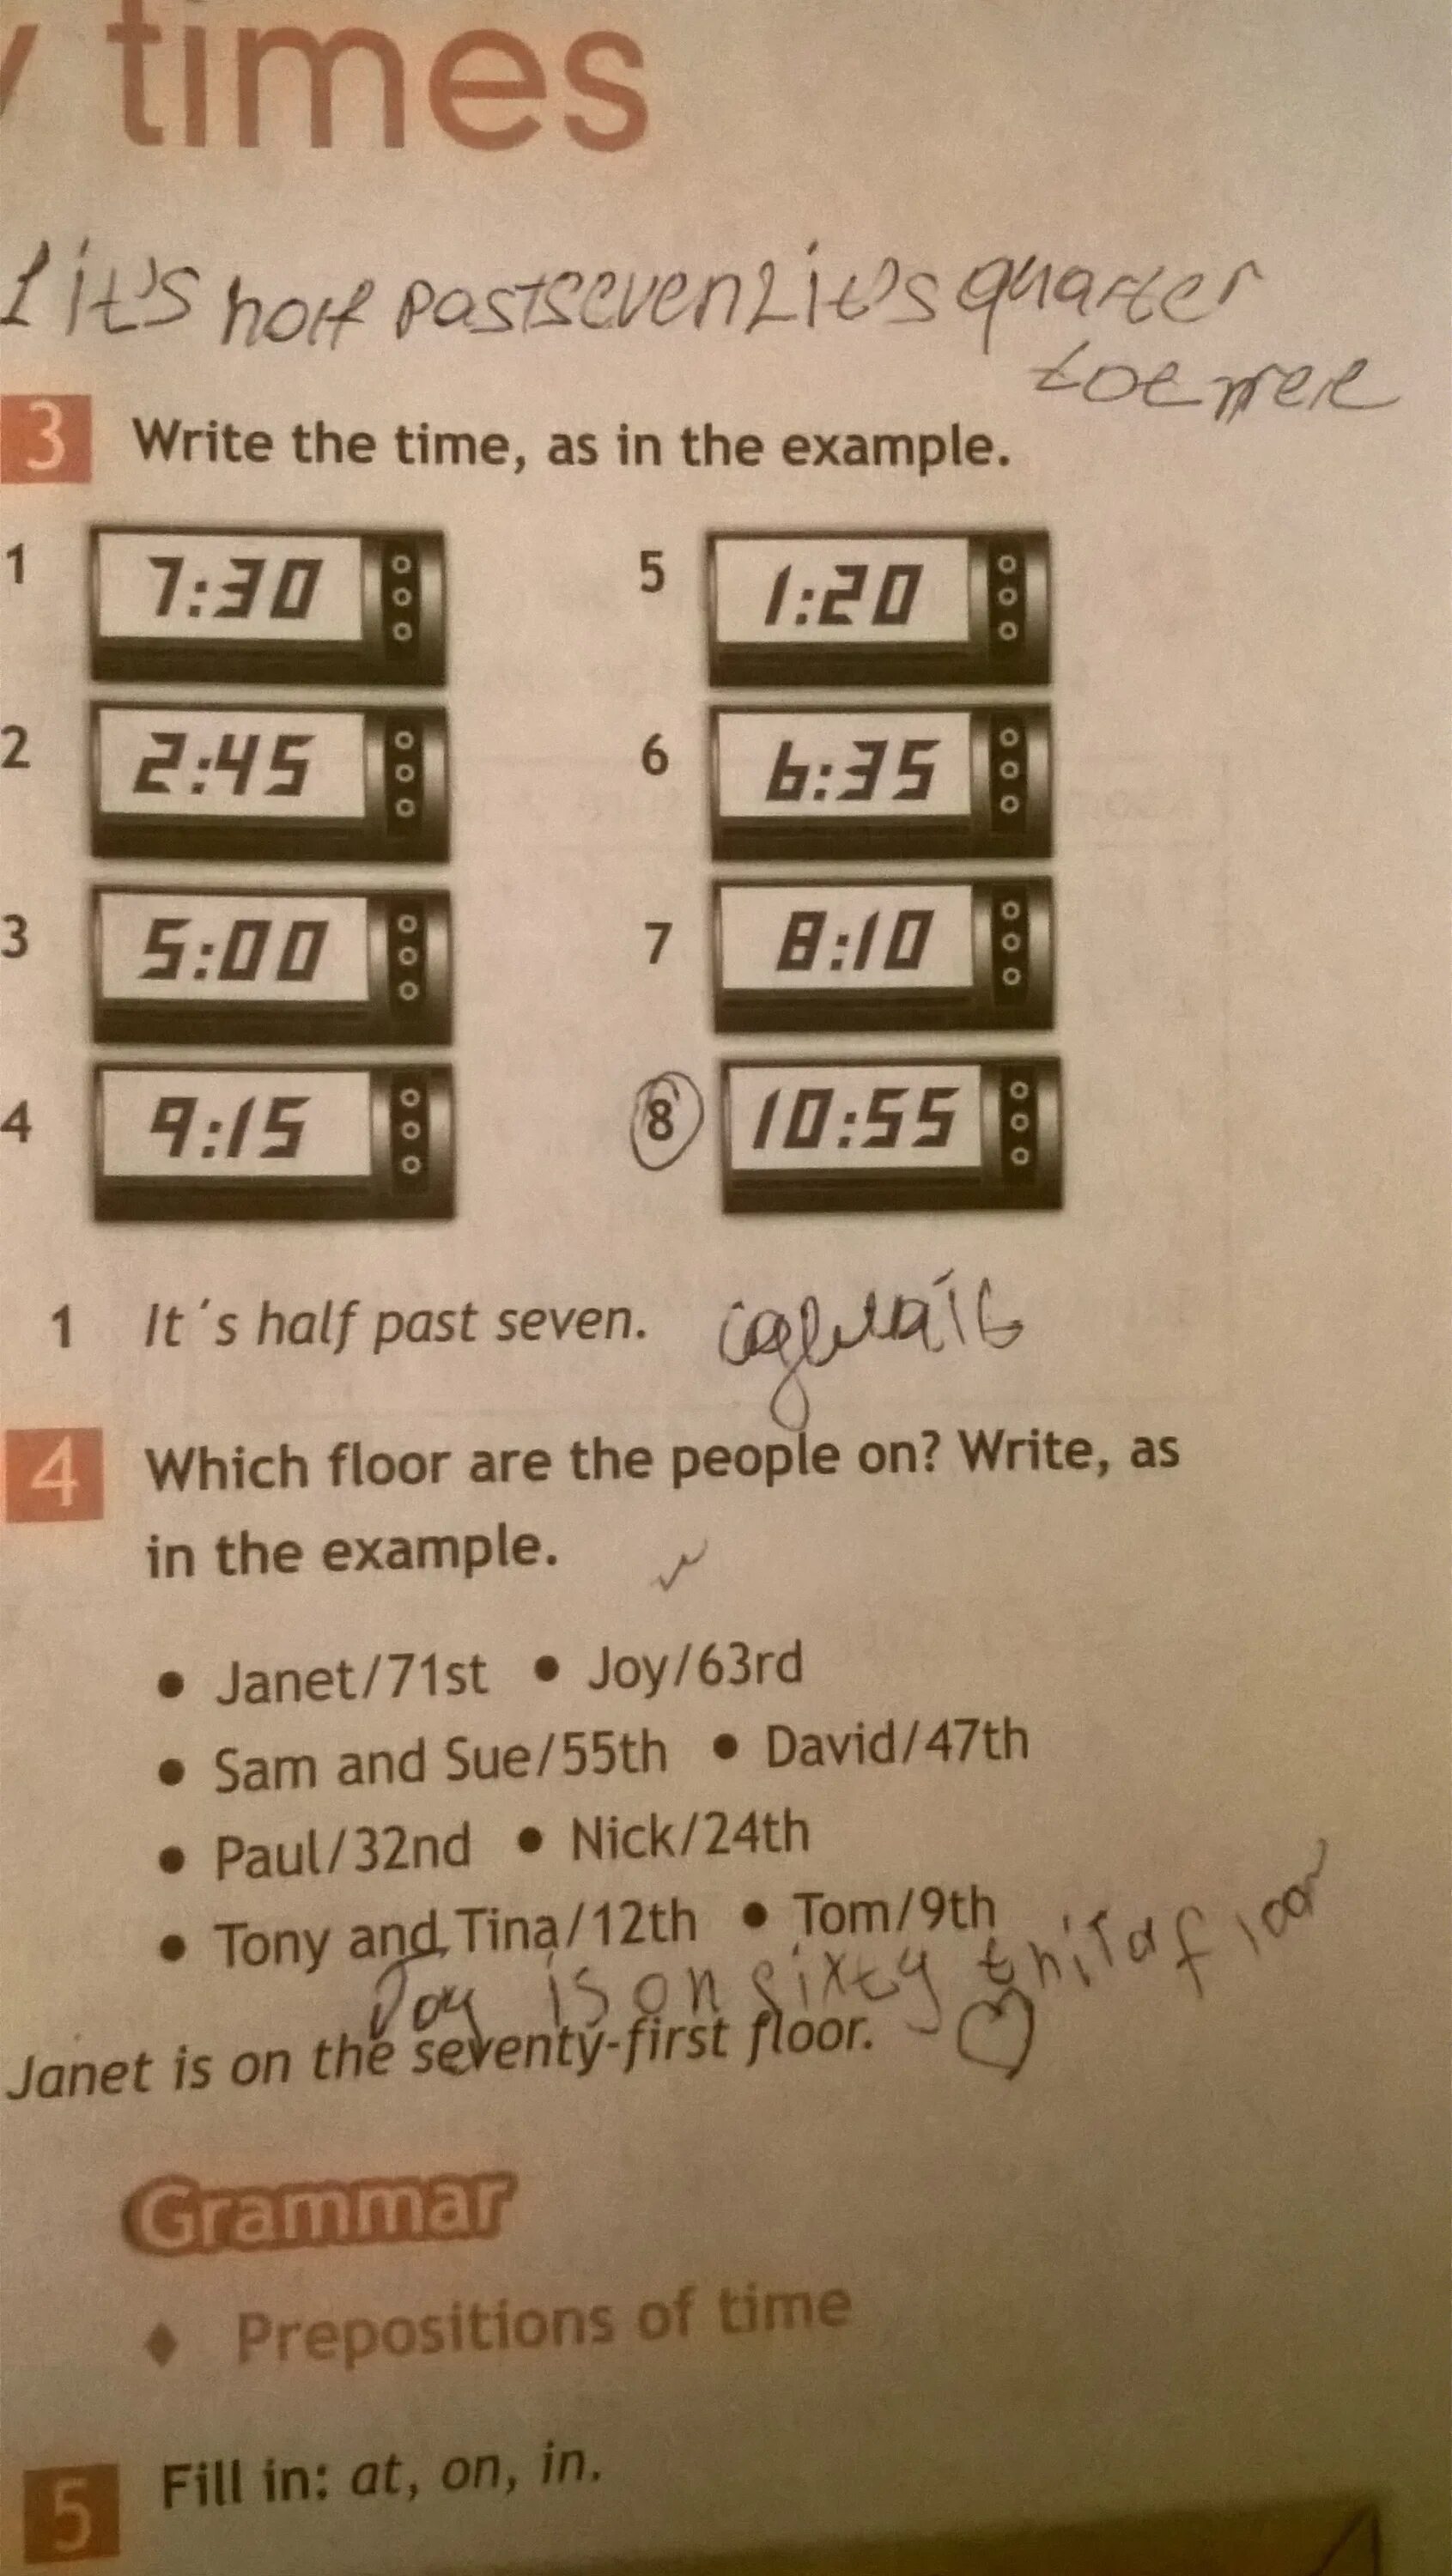 times
1 it's half past seven 2 it's quarter
3 Write the time, as in the example.
1 7:30 5 1:20
2 2:45 6 6:35
3 5:00 7 8:10
4 9:15 8 10:55
1 It's half past seven.
4 Which floor are the people on? Write, as
in the example.
• Janet/71st • Joy/63rd
• Sam and Sue/55th • David/47th
• Paul/32nd • Nick/24th
• Tony and Tina/12th • Tom/9th
Joy is on sixty
Janet is on the seventy-first floor.
Grammar
♦ Prepositions of time
5 Fill in: at, on, in.